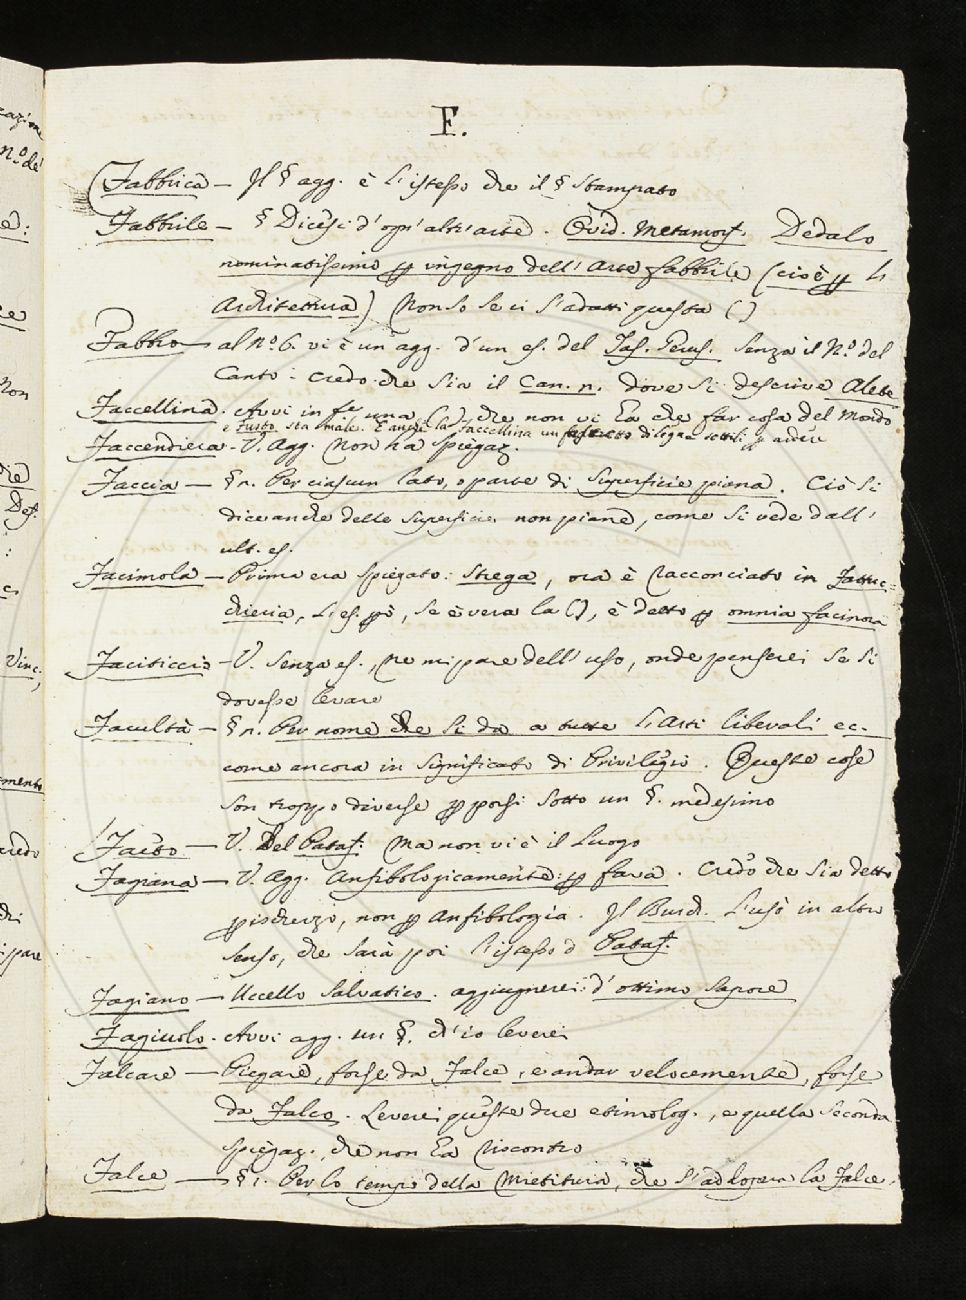 F.
Fabbrica – Il § agg. è l'istesso che il § stampato
Fabbrile – § Dicesi d'ogn'altr'arte. Ovid. Metamorf. Dedalo
nominatissimo p ingegno dell'Arte fabbrile (cioè p l'
Architettura) Non so se ci s'adatti questa ()
Fabbro – al N.º 6. vi è un agg. d'un es. del Tas. Gerus. senza il N.º del
Canto: credo che sia il Can. n. dove si descrive Alete
Faccellina. Avvi in f. una () che non vi ha che far cosa del mondo
e Furbo sta male. È anche la Faccellina un fascetto di legne sottili p ardere
Faccendiera - V. Agg. Non ha spiegaz.
Faccia – § n. Per ciascun lato, o parte di superficie piana. Ciò si
dice anche delle superficie non piane, come si vede dall'
ult. es.
Facimola – Prima era spiegato: Strega, ora è racconciato in Fattuc=
chieria, l'es. pò, se è vera la (), è detto p omnia facinora
Faciticcio – V. senza es., Ne mi pare dell'uso, onde penserei se si
dovesse levare
Facultà – § n. Per nome che si da a tutte l'Arti liberali ec.
come ancora in significato di Privilegio. Queste cose
son troppo diverse p porsi sotto un §. medesimo
Facto – V. Del Pataf. Ma non vi è il Luogo
Fagiana – V. Agg. Anfibologicamente p fava. Credo che sia detto
p ischerzo, non p anfibologia. Il Burch. l'usò in altro
senso, che sarà poi l'istesso d Pataf.
Fagiano – Uccello salvatico. aggiugnerei: d'ottimo sapore
Fagiuolo. Avvi agg. un §. ch'io leverei
Falcare – Piegare, forse da Falce, e andar velocemente, forse
da Falco. Leverei queste due etimolog., e quella seconda
spiegaz., che non ha riscontro
Falce – § 1. Per lo tempo della Mietitura, che s'adopera la Falce.